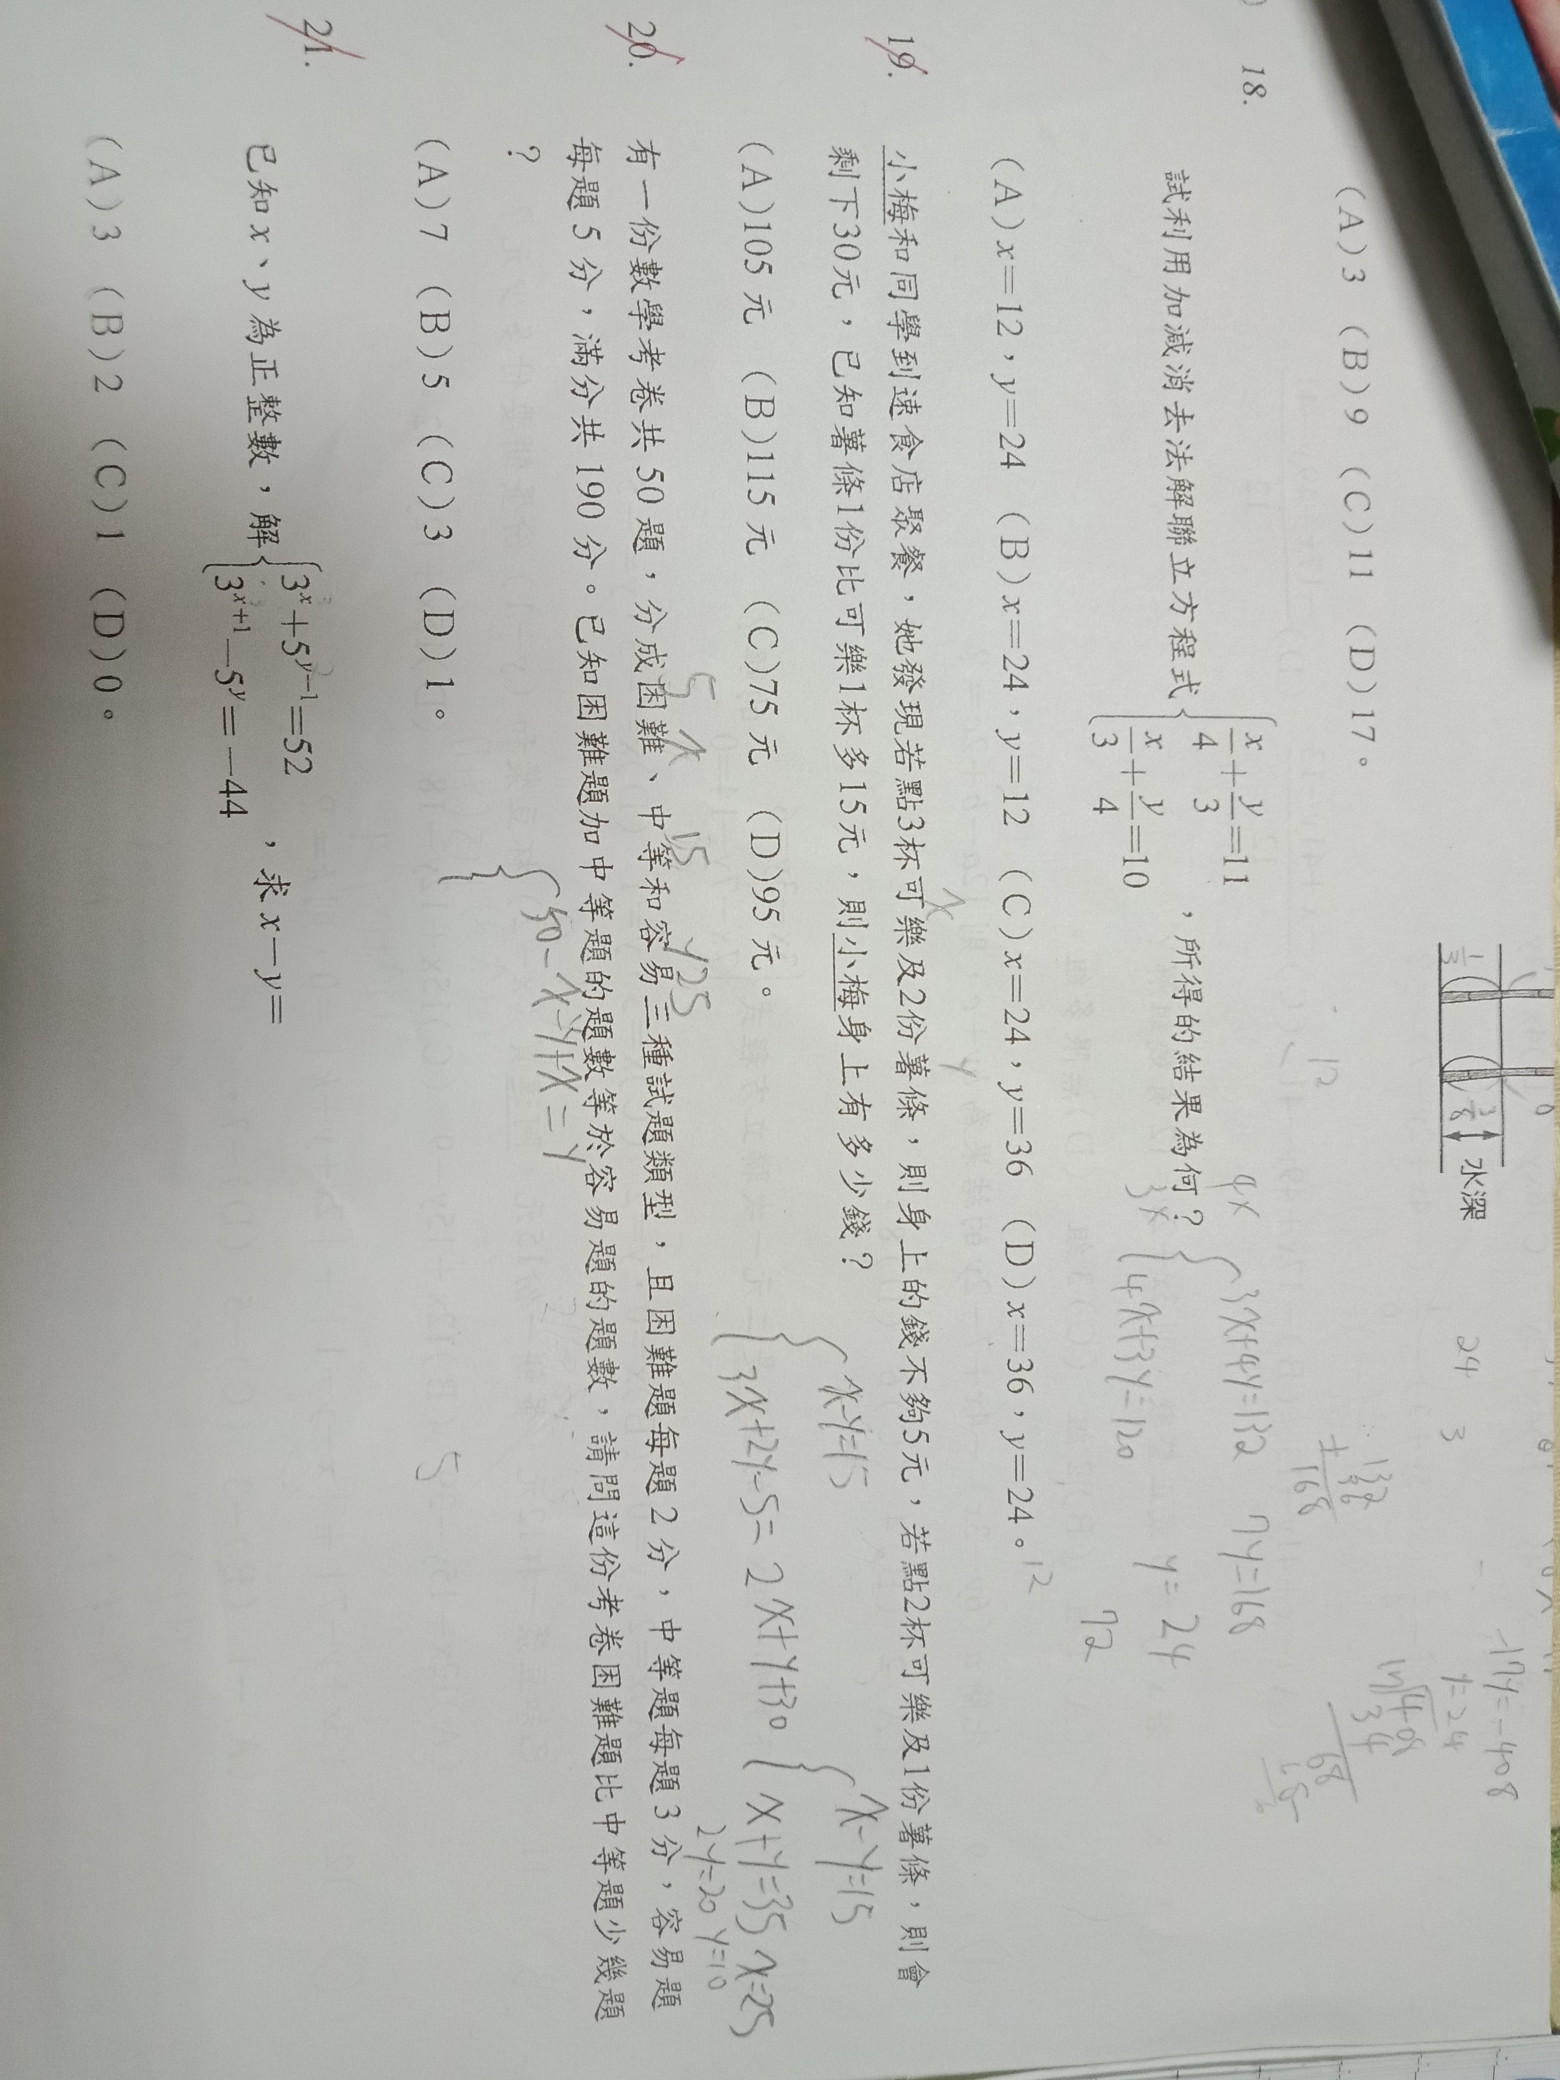 (A)3 (B)9 (C)11 (D)17。
水深
1/3
3/8
18.
試利用加減消去法解聯立方程式{x/4+y/3=11
x/3+y/4=10 ,所得的結果為何?
4x
3x
{3x+4y=132
4x+3y=120
7y=168
y=24
72
12
24 3
132
+ 36
168
-17y=-408
y=24
17 408
34
68
68
(A)x=12,y=24 (B)x=24,y=12 (C)x=24,y=36 (D)x=36,y=24。
12
19.
小梅和同學到速食店聚餐,她發現若點3杯可樂及2份薯條,則身上的錢不夠5元,若點2杯可樂及1份薯條,則會
剩下30元,已知薯條1份比可樂1杯多15元,則小梅身上有多少錢?
x
y
{x-y=15
3x+2y-5=2x+y+30
{x-y=15
x+y=35 x=25
2y=20 y=10
(A)105元 (B)115元 (C)75元 (D)95元。
20.
5 x 15 y25
有一份數學考卷共50題,分成困難、中等和容易三種試題類型,且困難題每題2分,中等題每題3分,容易題
每題5分,滿分共190分。已知困難題加中等題的題數等於容易題的題數,請問這份考卷困難題比中等題少幾題
?
{50-x-y+x=y
5
(A)7 (B)5 (C)3 (D)1。
21.
已知x、y為正整數,解{3^x+5^(y-1)=52
3^(x+1)-5^y=-44 ,求x-y=
(A)3 (B)2 (C)1 (D)0。